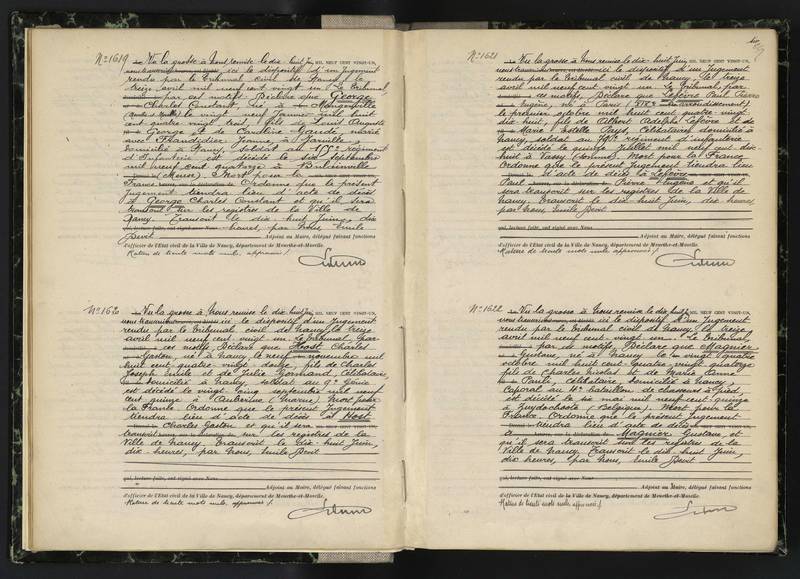 N° 1619
Vu la grosse à Nous remise le dix huit Juin MIL NEUF CENT VINGT-UN,
nous transcrivons ici le dispositif d'un Jugement
rendu par le Tribunal civil de Nancy le
treize avril mil neuf cent vingt un. Le Tribunal
par ces motifs, Déclare que George
Charles Constant, né à Mangonville
le vingt neuf Janvier mil huit
cent quatre vingt trois, fils de Louis Auguste
George et de Caroline Gaude, marié
avec Jeanne, à Jarville,
domicilié à Nancy, soldat au régiment
d'Infanterie est décédé le six septembre
mil neuf cent quatorze à
(Meuse). Mort pour la
France. Ordonne que le présent
Jugement tiendra lieu d'acte de décès
à George Charles Constant et qu'il sera
transcrit sur les registres de la Ville de
Nancy. Transcrit le dix huit Juin, dix
heures, par Nous, Emile
Adjoint au Maire, délégué faisant fonctions
d'officier de l'Etat civil de la Ville de Nancy, département de Meurthe-et-Moselle.
Rature de trente mots nuls, approuvés /.
N° 162
Vu la grosse à Nous remise le dix huit Juin MIL NEUF CENT VINGT-UN,
nous transcrivons ici le dispositif d'un Jugement
rendu par le Tribunal civil de Nancy le treize
avril mil neuf cent vingt un. Le Tribunal, par
ces motifs, Déclare que Host Charles
Gaston, né à Nancy le neuf novembre mil
huit cent quatre-vingt douze, fils de Charles
Joseph Emile et de Julie, Célibataire,
domicilié à Nancy, soldat au 9e Génie
est décédé le vingt cinq septembre mil neuf
cent quinze à Aubérive (Marne). Mort pour
la France. Ordonne que le présent Jugement
tiendra lieu d'acte de décès à Host
Charles Gaston et qu'il sera
transcrit sur les registres de la
Ville de Nancy. Transcrit le dix huit Juin,
dix heures, par Nous, Emile
qui, lecture faite, ont signé avec Nous
Adjoint au Maire, délégué faisant fonctions
d'officier de l'Etat civil de la Ville de Nancy, département de Meurthe-et-Moselle.
Rature de trente mots nuls, approuvés /.
N° 1621
Vu la grosse à Nous remise le dix huit Juin MIL NEUF CENT VINGT-UN,
nous transcrivons ici le dispositif d'un Jugement
rendu par le Tribunal civil de Nancy, le treize
avril mil neuf cent vingt un. Le Tribunal, par
ces motifs, Déclare que Lefèvre Paul Pierre
Eugène, né à Paris (arrondissement)
le premier octobre mil huit cent quatre vingt
dix huit, fils de Adolphe Lefèvre et de
Marie Estelle Pays, Célibataire, domicilié à
Nancy, soldat au régiment d'infanterie
est décédé le quinze Juillet mil neuf cent dix
huit à Passy (). Mort pour la France.
Ordonne que le présent Jugement tiendra lieu
d'acte de décès à Lefèvre
Paul Pierre Eugène et qu'il
sera transcrit sur les registres de la Ville de
Nancy. Transcrit le dix huit Juin, dix heures,
par Nous, Emile
qui, lecture faite, ont signé avec Nous
Adjoint au Maire, délégué faisant fonctions
d'officier de l'Etat civil de la Ville de Nancy, département de Meurthe-et-Moselle.
Rature de trente mots nuls, approuvés /.
N° 1622
Vu la grosse à Nous remise le dix huit Juin MIL NEUF CENT VINGT-UN,
nous transcrivons ici le dispositif d'un Jugement
rendu par le Tribunal civil de Nancy, le treize
avril mil neuf cent vingt un. Le Tribunal,
par ces motifs, Déclare que Magnier
Gustave, né à Nancy le vingt quatre
octobre mil huit cent quatre vingt quatorze
fils de Charles Nicolas et de Marie Anne
Pauli, Célibataire, domicilié à Nancy,
Caporal au Bataillon de chasseurs à pied,
est décédé le six mai mil neuf cent quinze
à Zuydschoote (Belgique). Mort pour la
France. Ordonne que le présent Jugement
tiendra lieu d'acte de décès
à Magnier Gustave et
qu'il sera transcrit sur les registres de la
Ville de Nancy. Transcrit le dix huit Juin,
dix heures, par Nous, Emile
qui, lecture faite, ont signé avec Nous
Adjoint au Maire, délégué faisant fonctions
d'officier de l'Etat civil de la Ville de Nancy, département de Meurthe-et-Moselle.
Rature de trente mots nuls, approuvés /.